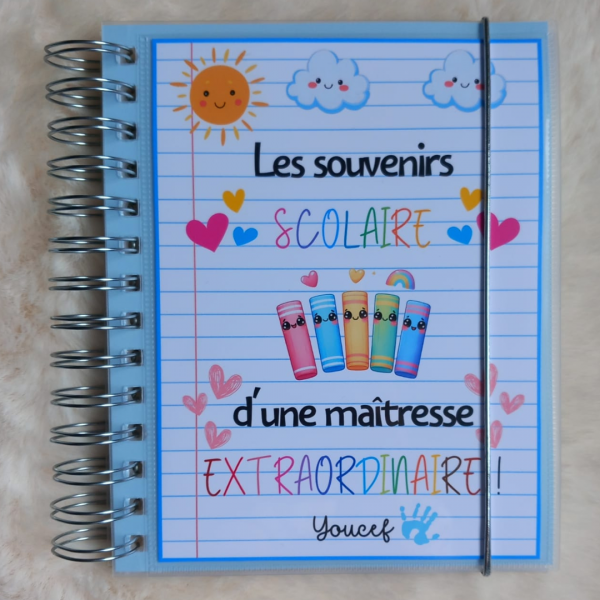 Les souvenirs
SCOLAIRE
d'une maîtresse
EXTRAORDINAIRE !
Youcef